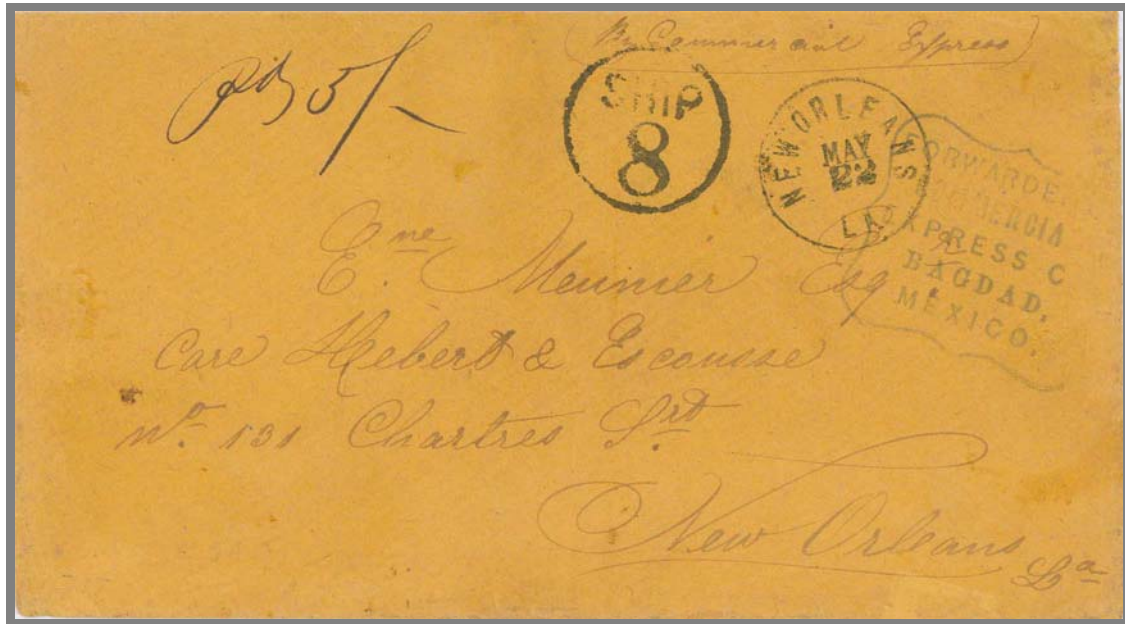 (By Commercial Express)
pd 5/-
SHIP
8
NEW ORLEANS
MAY
22
LA.
FORWARDE
COMMERCIA
EXPRESS C
BAGDAD,
MEXICO.
E.ne Meunier Esq.
Care Hebert & Escousse
No. 131 Chartres Srt
New Orleans
La